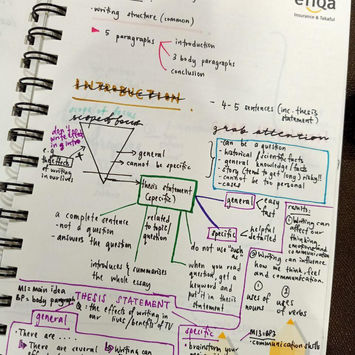 enqa
Insurance & Takaful
- writing structure (common)
5 paragraphs
introduction
3 body paragraphs
conclusion
INTRODUCTION
- 4-5 sentences (inc. thesis
statement)
scope of focus
grab attention
don't
write
effect
in
intro
general
cannot be specific
- can be a question
- historical / scientific facts
- general knowledge / facts
- story (tend to get long) risky!!
- cannot be too personal
- cases
e.g
the effects
of writing
in our lives
thesis statement
(specific)
general
easy
fast
specific
helpful
detailed
a complete sentence
- not a question
- answers the question
related to
topic/
question
do not use "such
as"
introduces & summarizes
the whole essay
when you read
question, get a
keyword and
put it in thesis
statement
results:
① Writing can
affect our
thinking,
emotion and
communication
② Writing
can influence
how we think, feel
and communication.
MI: main idea
BP: body paragraph
THESIS STATEMENT
Q: the effects of writing in
our lives / benefits of TV
① uses of
nouns
② uses of
verbs
general
- There are ....
There are several
Writing can
specific
- brainstorm your
MI3:BP3
communication skills